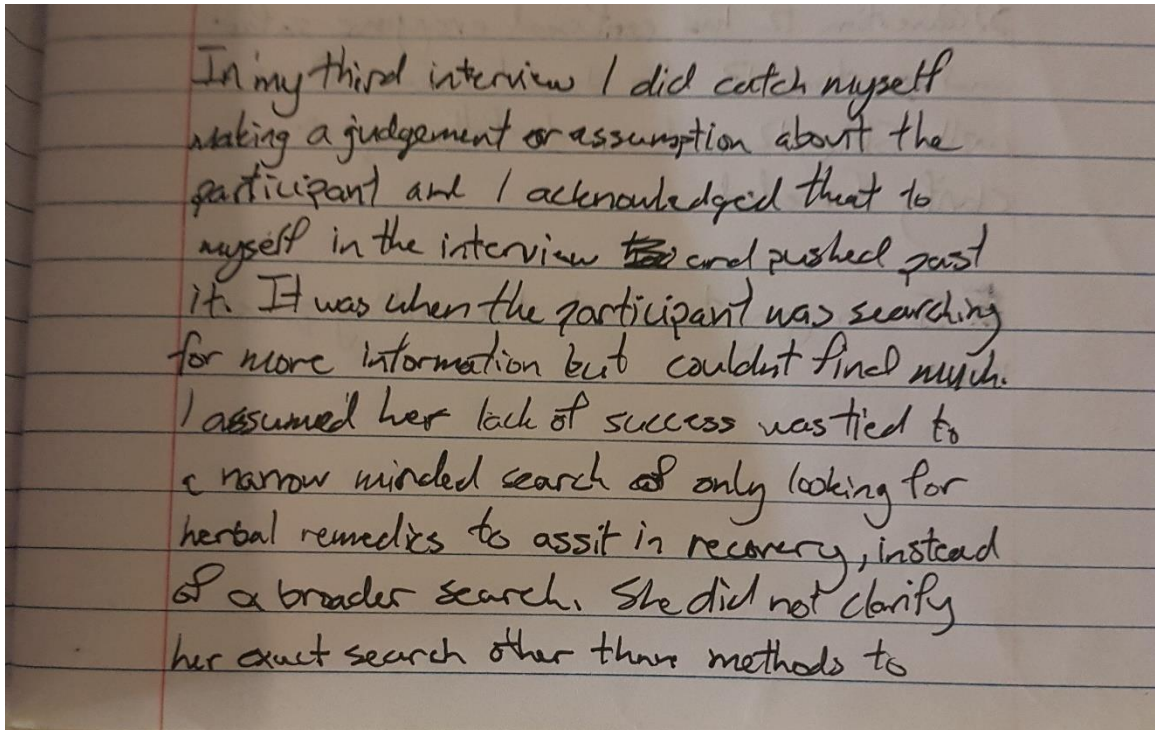 In my third interview I did catch myself
making a judgement or assumption about the
participant and I acknowledged that to
myself in the interview and pushed past
it. It was when the participant was searching
for more information but couldnt find much.
I assumed her lack of success was tied to
a narrow minded search of only looking for
herbal remedies to assit in recovery, instead
of a broader search. She did not clarify
her exact search other than methods to